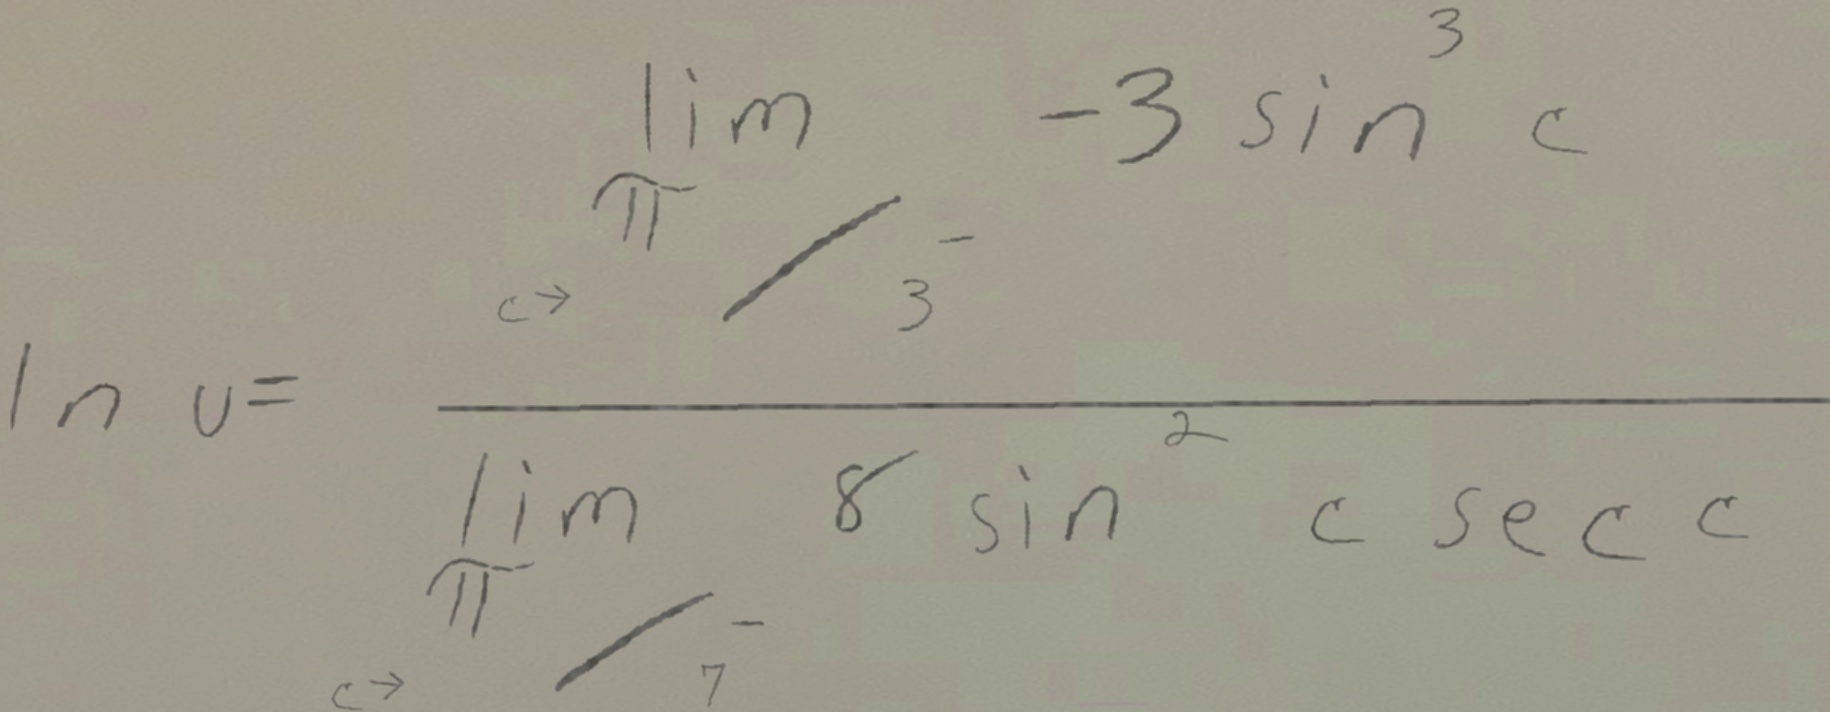 ln v = \frac{\lim_{c \to \pi/3^-} -3 \sin^3 c}{\lim_{c \to \pi/7^-} 8 \sin^2 c \sec c}